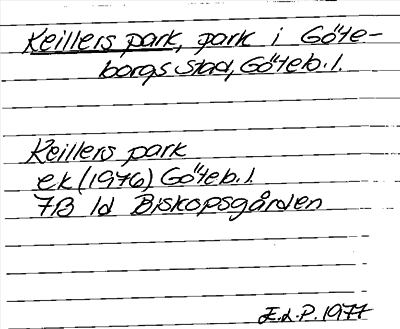 Keillers park, park i Göte-
borgs stad, Göteb. l.
Keillers park
ek (1976) Göteb. l.
7B 1d Biskopsgården
E.L.P. 1977